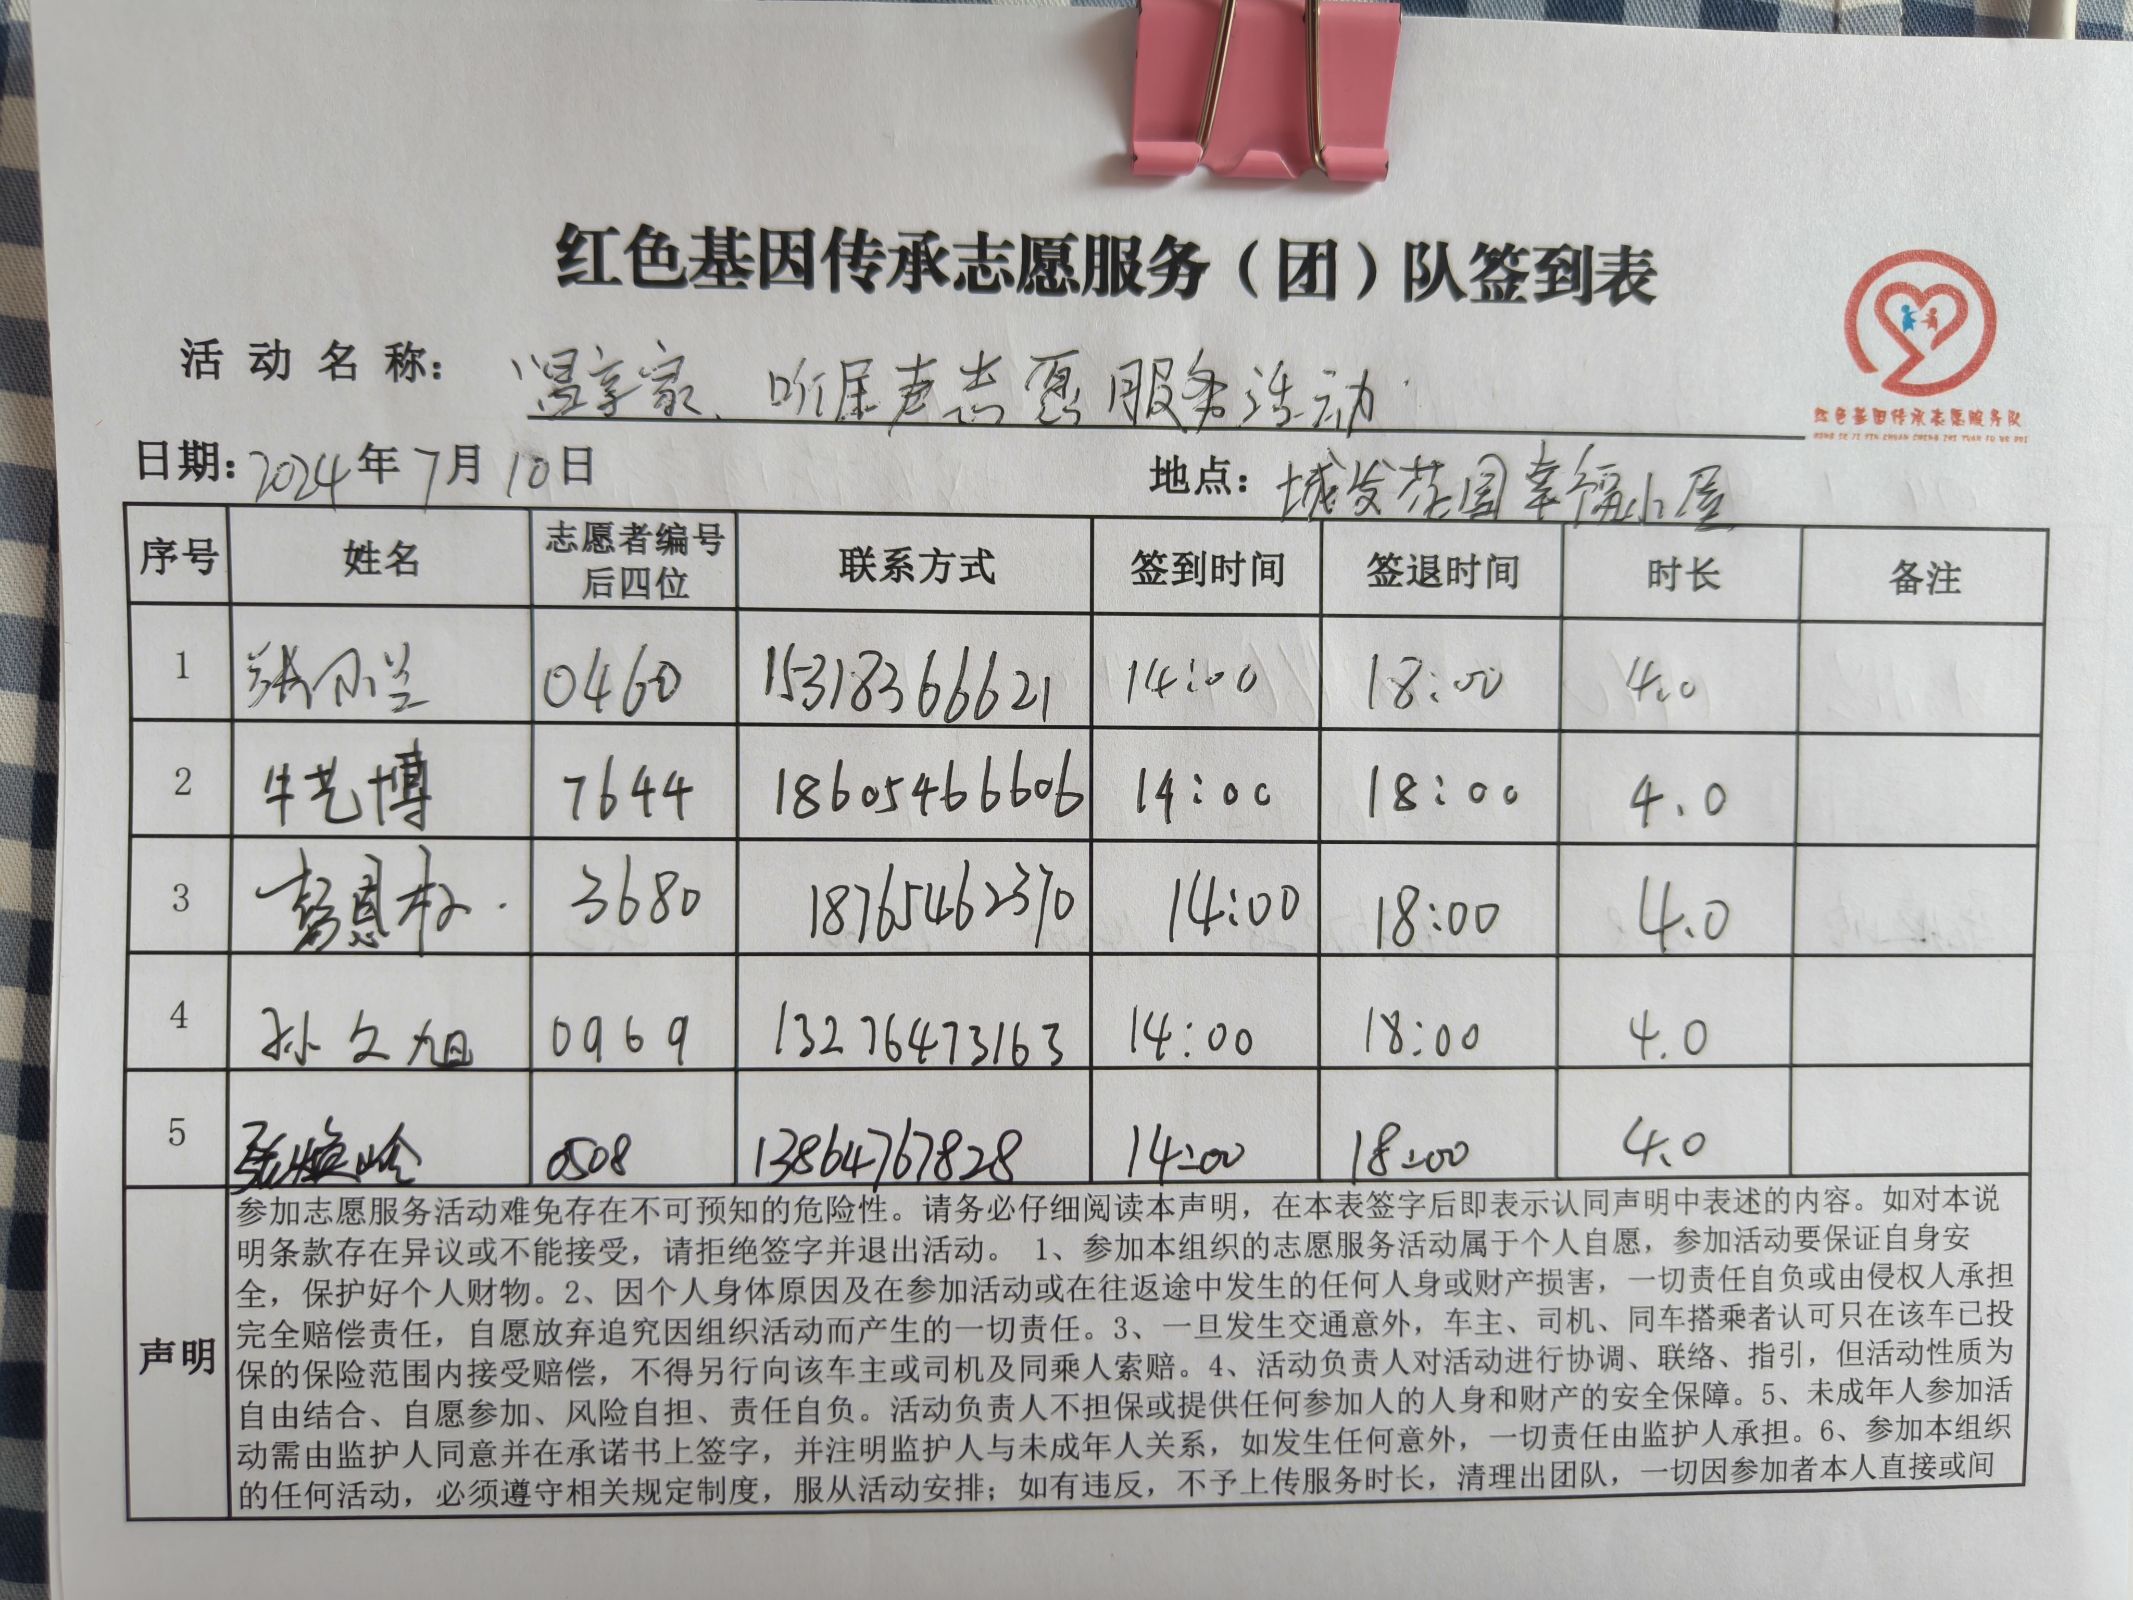 红色基因传承志愿服务（团）队签到表
活动名称： 温享家、听居声志愿服务活动
红色基因传承志愿服务队
HONG SE JI YIN CHUAN CHENG ZHI YUAN FU WU DUI
日期：2024年7月10日 地点：城发花园幸福小屋
序号 姓名 志愿者编号后四位 联系方式 签到时间 签退时间 时长 备注
1 0460 15318366621 14:00 18:00 4.0
2 牛艺博 7644 18605466606 14:00 18:00 4.0
3 3680 18765462370 14:00 18:00 4.0
4 孙文旭 0969 13276473163 14:00 18:00 4.0
5 0508 13864767828 14:00 18:00 4.0
声明
参加志愿服务活动难免存在不可预知的危险性。请务必仔细阅读本声明，在本表签字后即表示认同声明中表述的内容。如对本说
明条款存在异议或不能接受，请拒绝签字并退出活动。 1、参加本组织的志愿服务活动属于个人自愿，参加活动要保证自身安
全，保护好个人财物。2、因个人身体原因及在参加活动或在往返途中发生的任何人身或财产损害，一切责任自负或由侵权人承担
完全赔偿责任，自愿放弃追究因组织活动而产生的一切责任。3、一旦发生交通意外，车主、司机、同车搭乘者认可只在该车已投
保的保险范围内接受赔偿，不得另行向该车主或司机及同乘人索赔。4、活动负责人对活动进行协调、联络、指引，但活动性质为
自由结合、自愿参加、风险自担、责任自负。活动负责人不担保或提供任何参加人的人身和财产的安全保障。5、未成年人参加活
动需由监护人同意并在承诺书上签字，并注明监护人与未成年人关系，如发生任何意外，一切责任由监护人承担。6、参加本组织
的任何活动，必须遵守相关规定制度，服从活动安排；如有违反，不予上传服务时长，清理出团队，一切因参加者本人直接或间